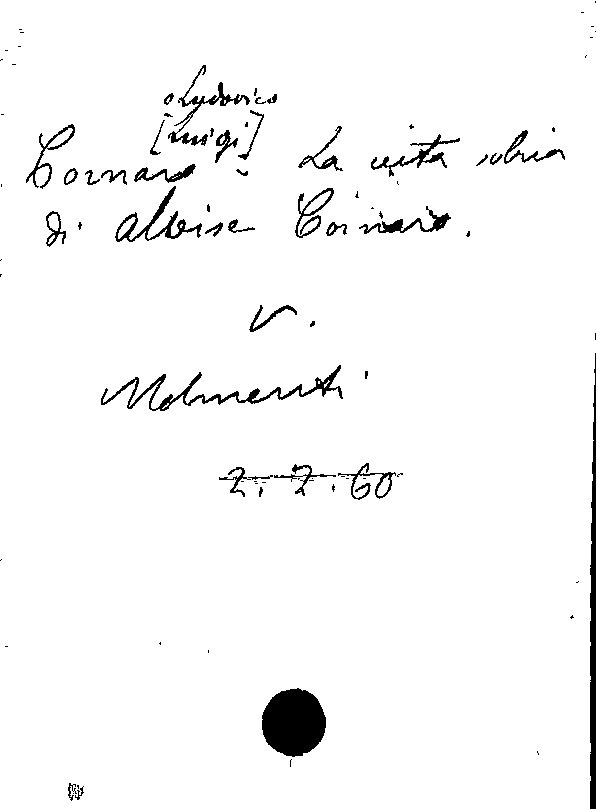 o Ludovico
[Luigi]
Cornaro - La vita sobria
di Alvise Cornaro.
V.
Molmenti
2.2.60